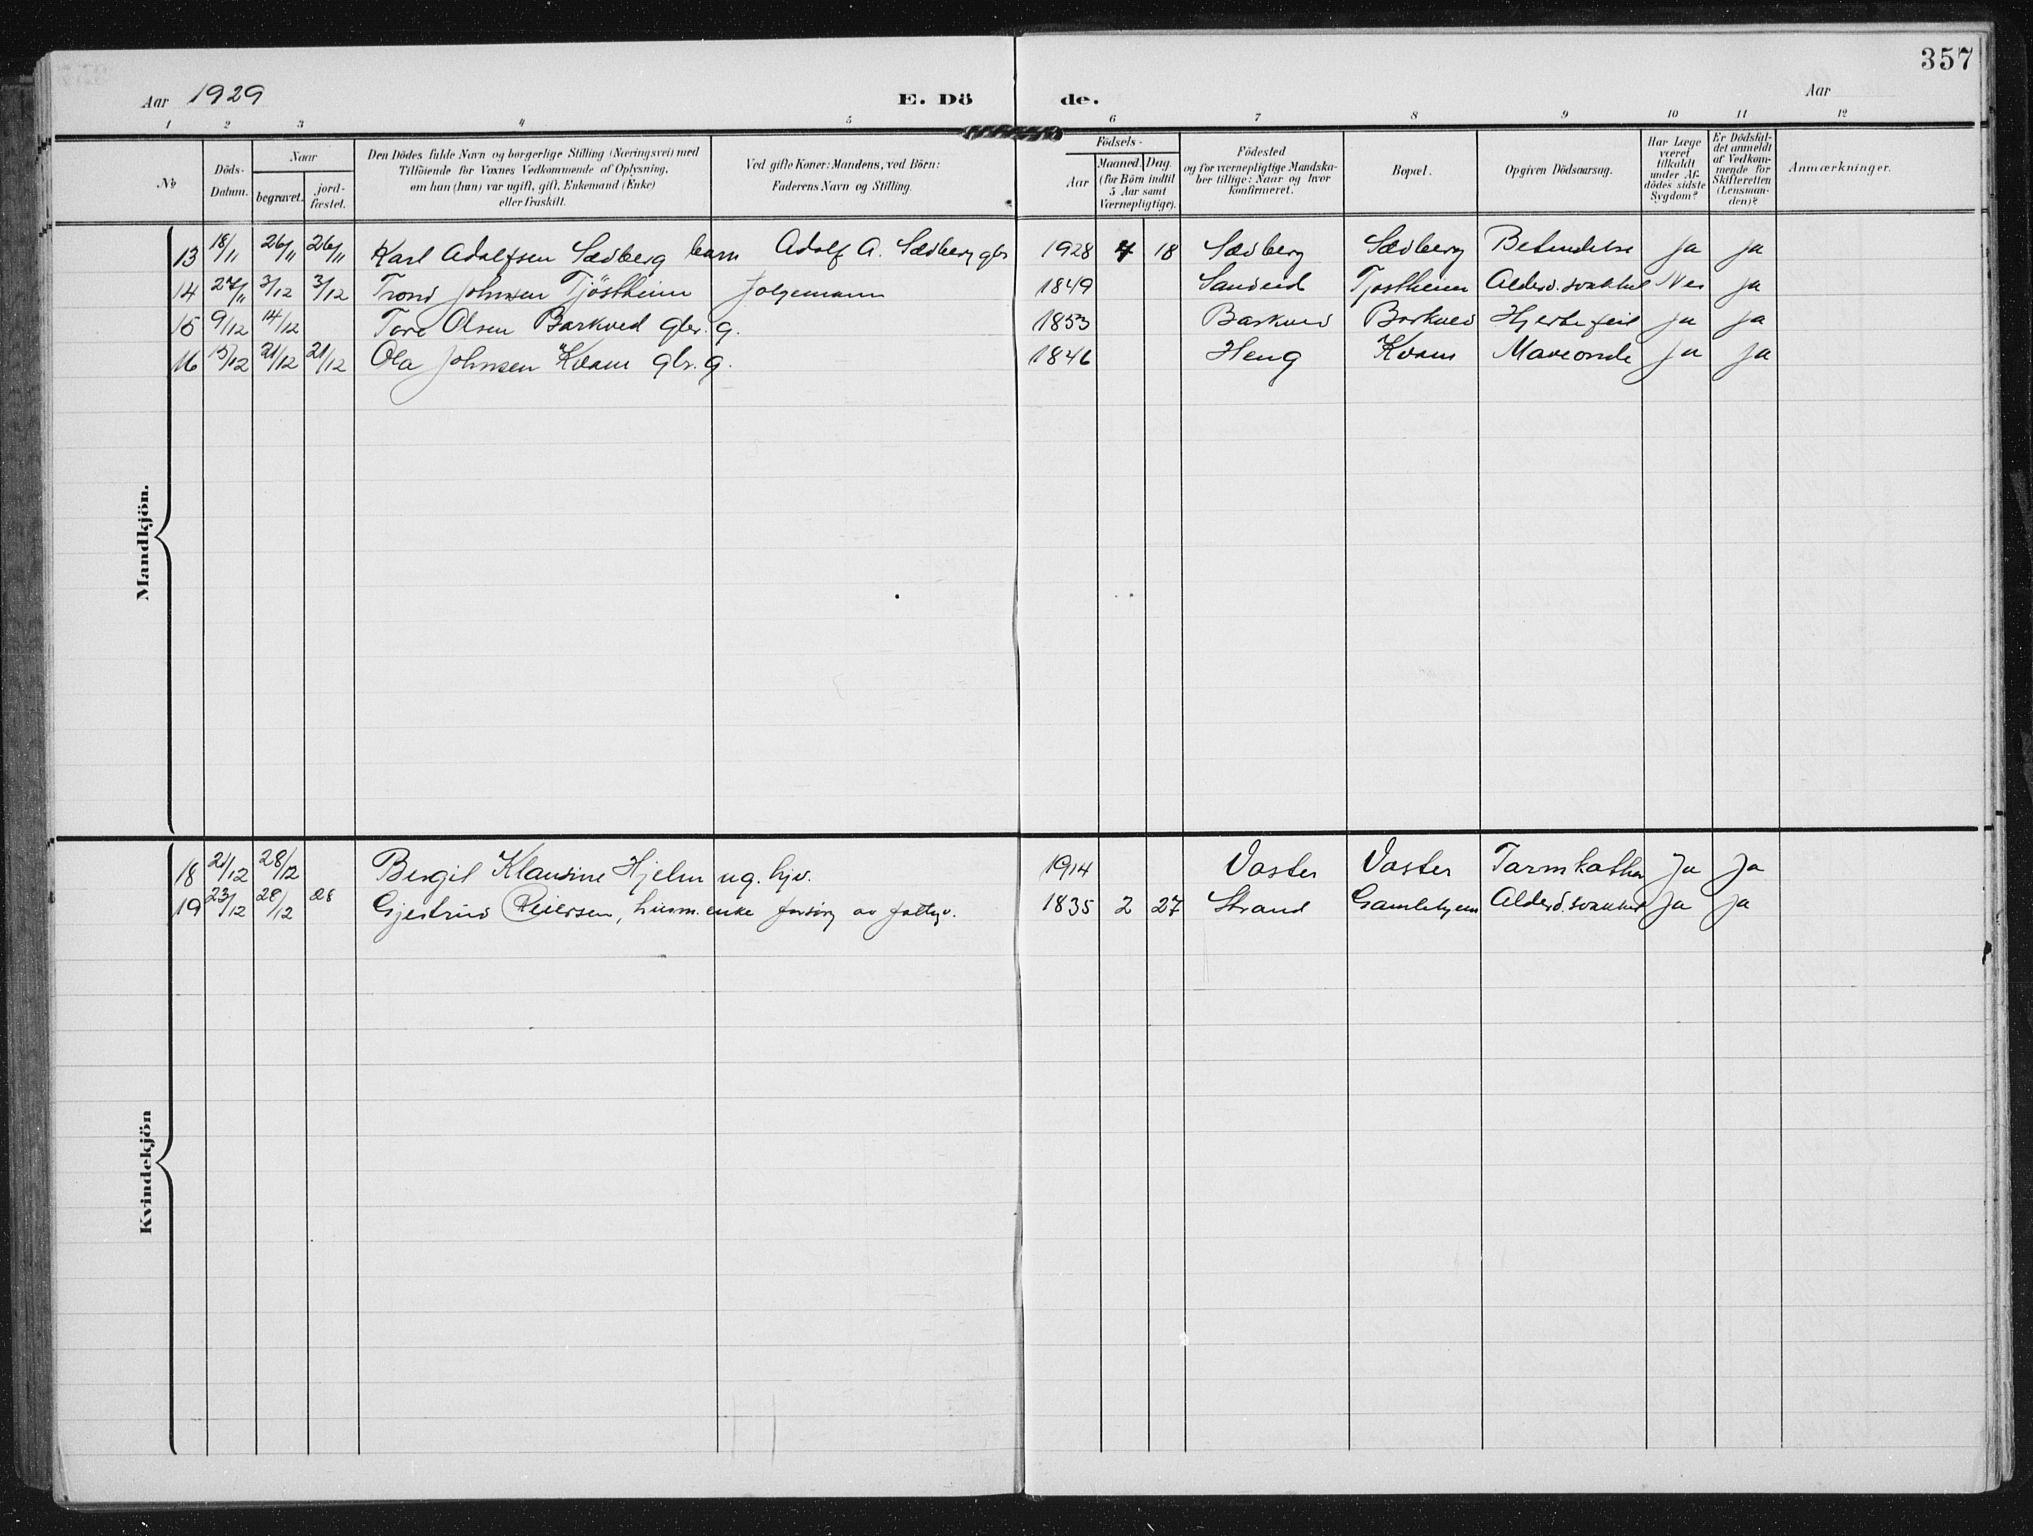 357
Aar 1929 E. Dö de. Aar
1 2 3 4 5 6 7 8 9 10 11 12
No
Döds-Datum.
Naar
begravet. jord-fæstet.
Den Dödes fulde Navn og borgerlige Stilling (Næringsvei) med
Tilföiende for Voxnes Vedkommende af Oplysning,
om han (hun) var ugift, gift, Enkemand (Enke)
eller fraskilt.
Ved gifte Koner: Mandens, ved Börn:
Faderens Navn og Stilling.
Födsels-
Aar Maaned. Dag.
(for Börn indtil
5 Aar samt
Værnepligtige).
Födested
og for værnepligtige Mandska-
ber tillige: Naar og hvor
konfirmeret.
Bopæl.
Opgiven Dödsaarsag.
Har Læge
været
tilkaldt
under Af-
dödes sidste
Sygdom?
Er Dödsfal-
det anmeldt
af Vedkom-
mende for
Skifteretten
(Lensman-
den)?
Anmærkninger.
Mandkjön.
13 18/11 26/11 26/11 Karl Adolfsen Sædberg barn Adolf A. Sædberg gbr 1928 4 18 Sædberg Sædberg Betendelse Ja Ja
14 27/11 3/12 3/12 Trond Johnsen Tjöstheim Folgemann 1849 Sandeid Tjostheim Alderd. svakhet Nei Ja
15 9/12 14/12 Tore Olsen Barkved gbr. g. 1853 Barkved Barkved Hjertefeil Ja Ja
16 15/12 21/12 21/12 Ola Johnsen Kvam gbr. g. 1846 Heng Kvam Maveonde Ja Ja
Kvindekjön
18 21/12 28/12 Bergit Klausine Hjelm ug. hjv. 1914 Voster Voster Tarmkathar Ja Ja
19 23/12 28/12 28 Gjestrud Reiersen, husm. enke forsörg av fattigv. 1835 2 27 Strand Gamlehjem Alderd. svakhet Ja Ja